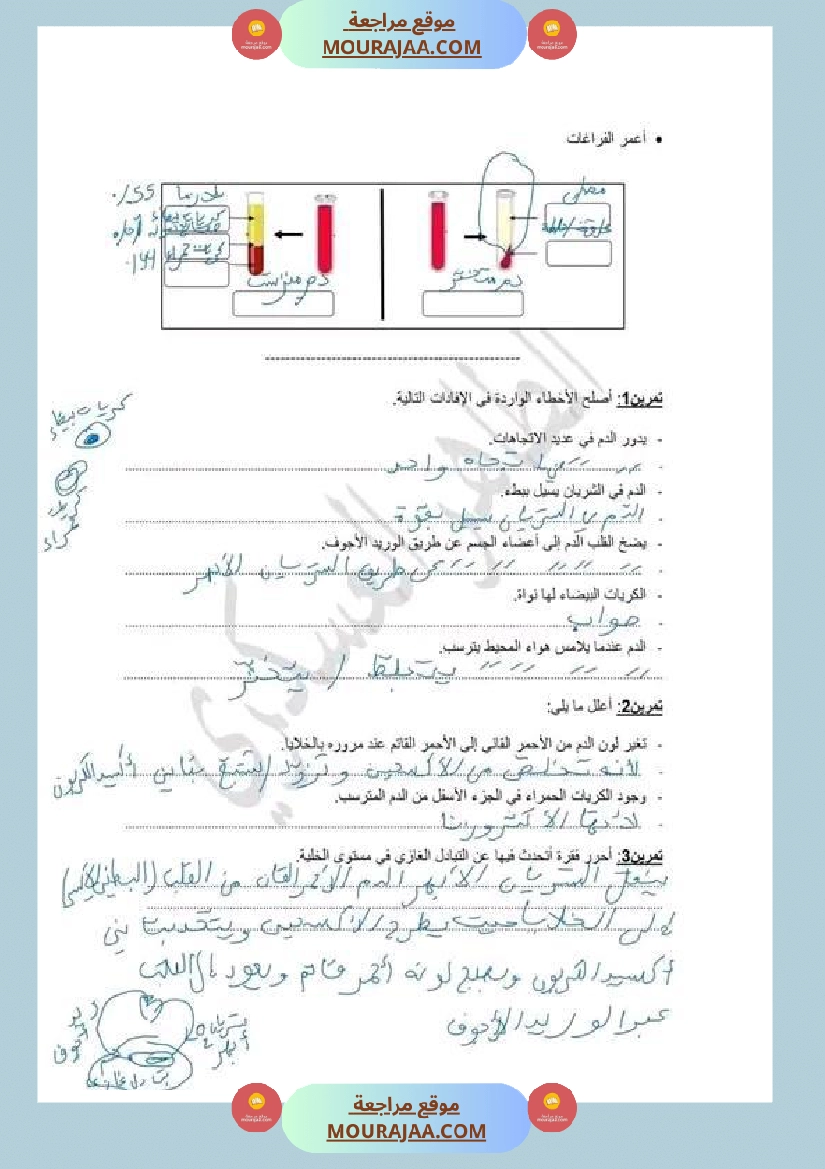 موقع مراجعة
MOURAJAA.COM
• أعمر الفراغات
مصل
بلازما 55%
كريات بيضاء
دم متخثر
دم مترسب
تمرين1: أصلح الأخطاء الواردة في الإفادات التالية.
- يدور الدم في عديد الاتجاهات.
اتجاه واحد
- الدم في الشريان يسيل ببطء.
الدم في الشريان يسيل بقوة
- يضخ القلب الدم إلى أعضاء الجسم عن طريق الوريد الأجوف.
عن طريق الشريان الأبهر
- الكريات البيضاء لها نواة.
صواب
- الدم عندما يلامس هواء المحيط يترسب.
يتجلط / يتخثر
كريات بيضاء
تمرين2: أعلل ما يلي:
- تغير لون الدم من الأحمر القاني إلى الأحمر القاتم عند مروره بالخلايا.
لأنه تخلص من الأكسجين وتزود / تشبع بثاني أكسيد الكربون
- وجود الكريات الحمراء في الجزء الأسفل من الدم المترسب.
لأنها الأكثر وزنا
تمرين3: أحرر فقرة أتحدث فيها عن التبادل الغازي في مستوى الخلية.
ينقل الشريان الأبهر الدم الأحمر القان من القلب (البطين الأيسر)
إلى الخلايا حيث يطرح الأكسجين ويتشبع بثني
أكسيد الكربون ويصبح لونه أحمر قاتم ويعود إلى القلب
عبر الوريد الأجوف
شريان أبهر
موقع مراجعة
MOURAJAA.COM